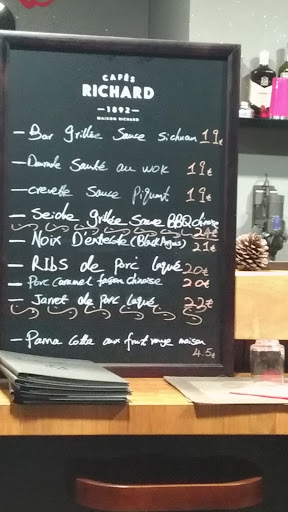 CAFÉS
RICHARD
1892
MAISON RICHARD
— Bar Grillée Sauce Sichuan 19€
— Daurade Sauté au wok 19€
— crevette Sauce Piquant 19€
— Seiche Grillée Sauce BBQ Chinoise
24€
— Noix D'entrecôte (Black Angus)
21€
— RIBS de Porc laqué 20€
— Porc caramel façon chinoise 20€
— Jarret de Porc laqué 22€
— Panna cotta aux fruit rouge maison
4.5€